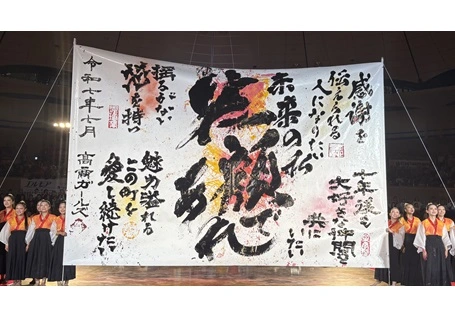 感謝を
伝えられる
人になりたい
年後も
大好きな仲間と
共に
いたい
未来の私
笑顔で
あれ
揺るがない
を持つ
魅力溢れる
この町を
愛し続けたい
令和七年七月
ガールズ